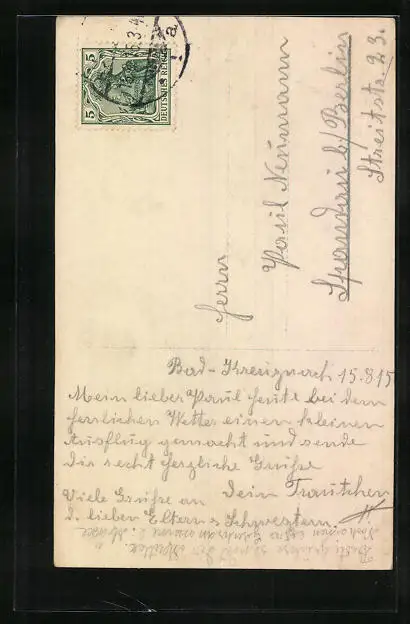 5
5
DEUTSCHES REICH
Herrn
Paul Neumann
Spandau b/Berlin
Streitstr. 23.
Bad-Kreuznach 15.8.15
Mein lieber Paul heute bei dem
herrlichen Wetter einen kleinen
Ausflug gemacht und sende
dir recht herzliche Grüße
Dein Trautchen
Viele Grüße an
d. lieben Eltern u Schwestern.